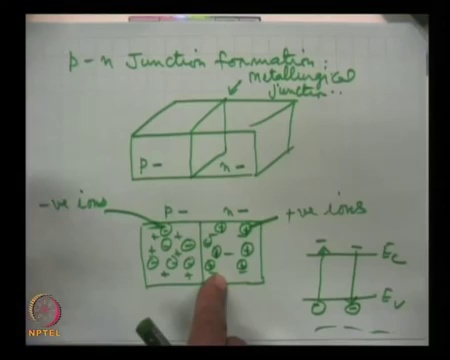 p-n Junction formation:
metallurgical
junction..
p-
n-
-ve ions
p-
n-
+ve ions
Ec
Ev
NPTEL